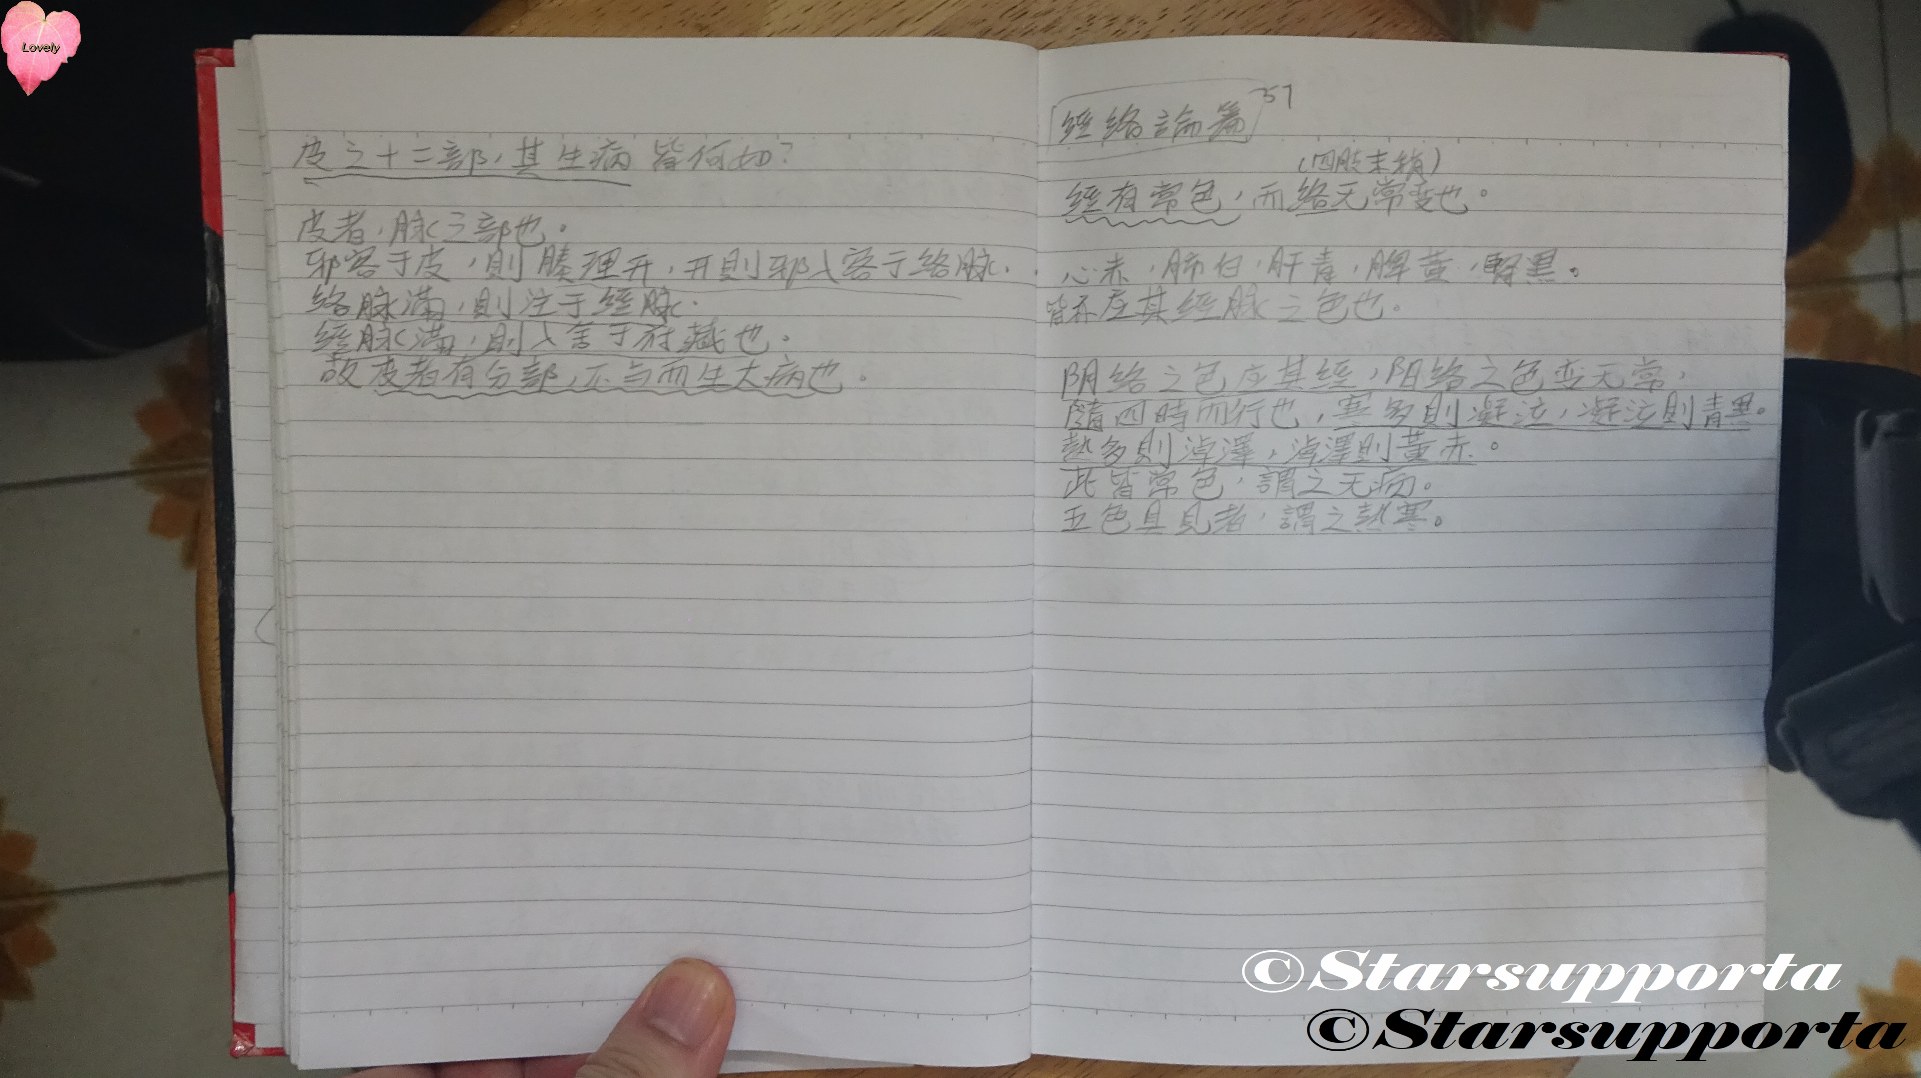 Lovely
皮之十二部，其生病皆何如？
皮者，脉之部也。
邪客于皮，則腠理开，开則邪入客于络脉．
络脉滿，則注于經脉．
經脉滿，則入舍于府藏也。
故皮者有分部，不与而生大病也。
經络論篇 57
(四肢末稍)
經有常色，而络无常变也。
心赤，肺白，肝青，脾黄，腎黑。
皆亦应其經脉之色也．
阴络之色应其經，阳络之色变无常，
隨四時而行也，寒多則凝泣，凝泣則青黑。
熱多則淖澤，淖澤則黄赤。
此皆常色，謂之无病。
五色具見者，謂之熱寒。
©Starsupporta
©Starsupporta